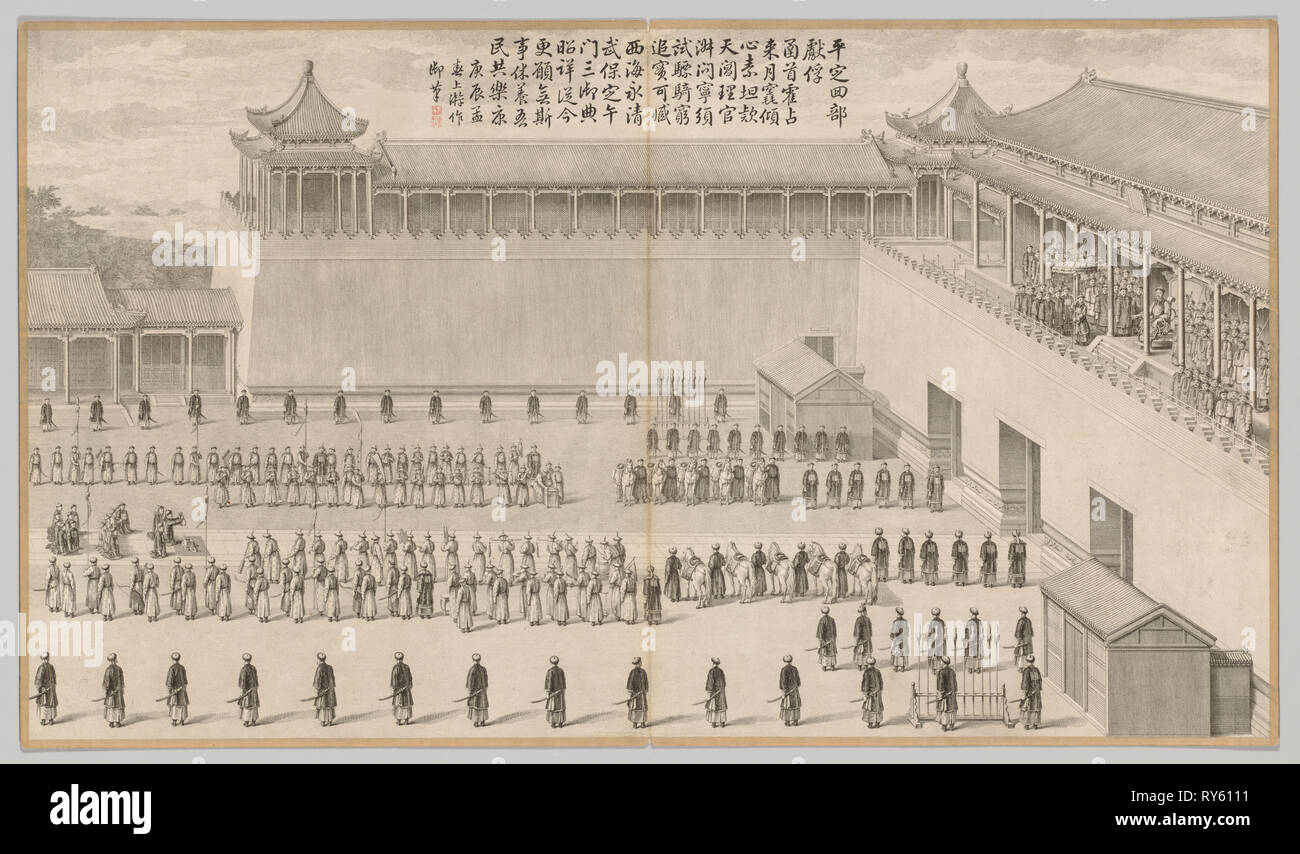 平定回部
獻俘
函首霍占
来月竁傾
心素坦欵
天閶理官
淑问寧須
試驃騎窮
追實可臧
西海永清
武保定午
门三御典
昭詳從今
更願無斯
事休養吾
民共樂康
庚辰孟
春上澣作
御筆
alamy
alamy
Image ID: RY6111
www.alamy.com